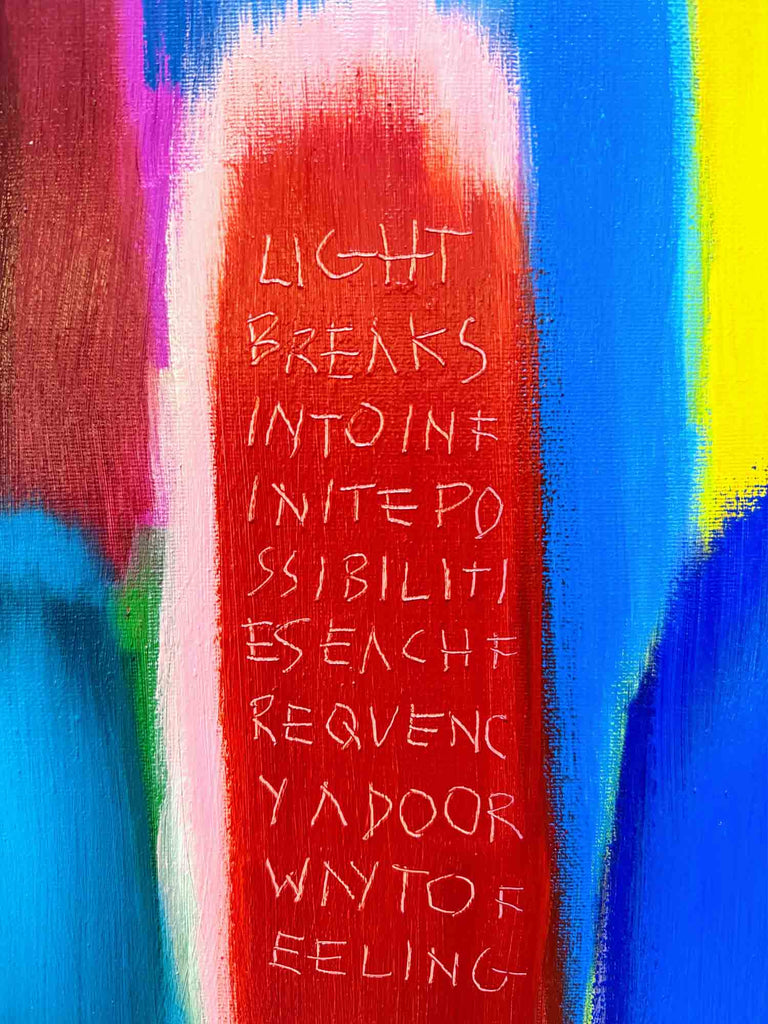 LIGHT
BREAKS
INTOINF
INITEPO
SSIBILITI
ESEACHF
REQVENC
YADOOR
WAYTOF
EELING